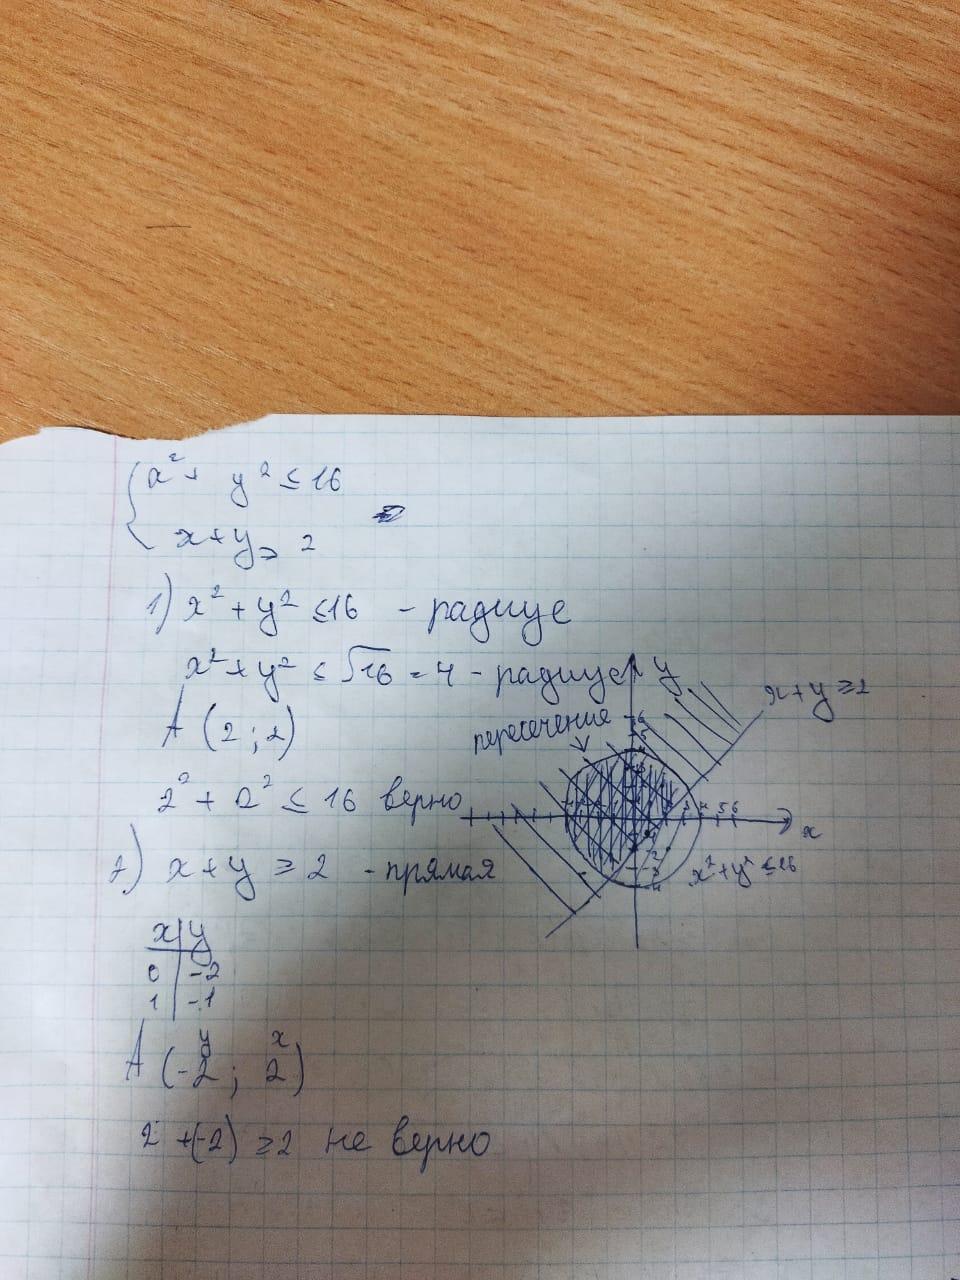 x² + y² ≤ 16
x + y ≥ 2
1) x² + y² ≤ 16 - радиус
x² + y² ≤ √16 = 4 - радиус
A (2 ; 2)
2² + 2² ≤ 16 верно
2) x + y ≥ 2 - прямая
x | y
0 | -2
1 | -1
y x
A (-2 ; 2)
2 + (-2) ≥ 2 не верно
y
x + y ≥ 2
пересечение
5 6
x
x² + y² ≤ 16